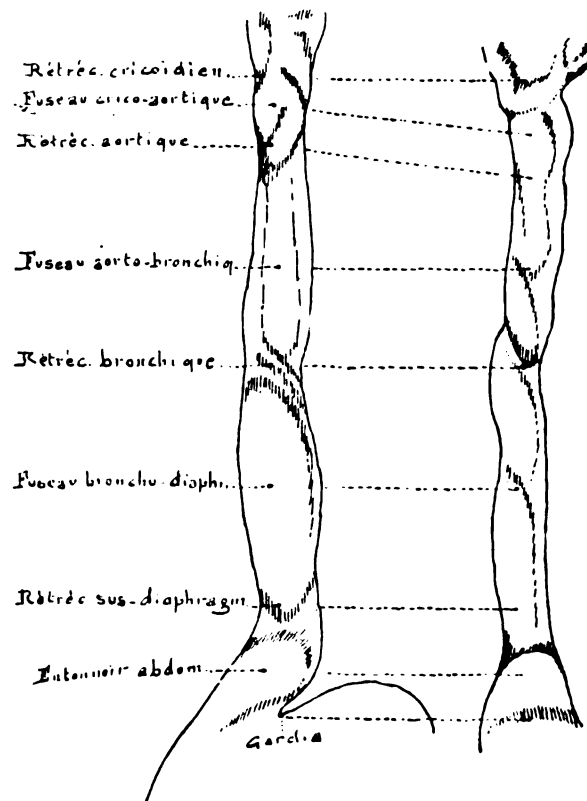 Rétréc. cricoidien
Fuseau crico-aortique
Rétréc. aortique
Fuseau aorto-bronchiq.
Rétréc. bronchique
Fuseau broncho-diaphr.
Rétréc sus-diaphragm
Entonnoir abdom.
Cardia